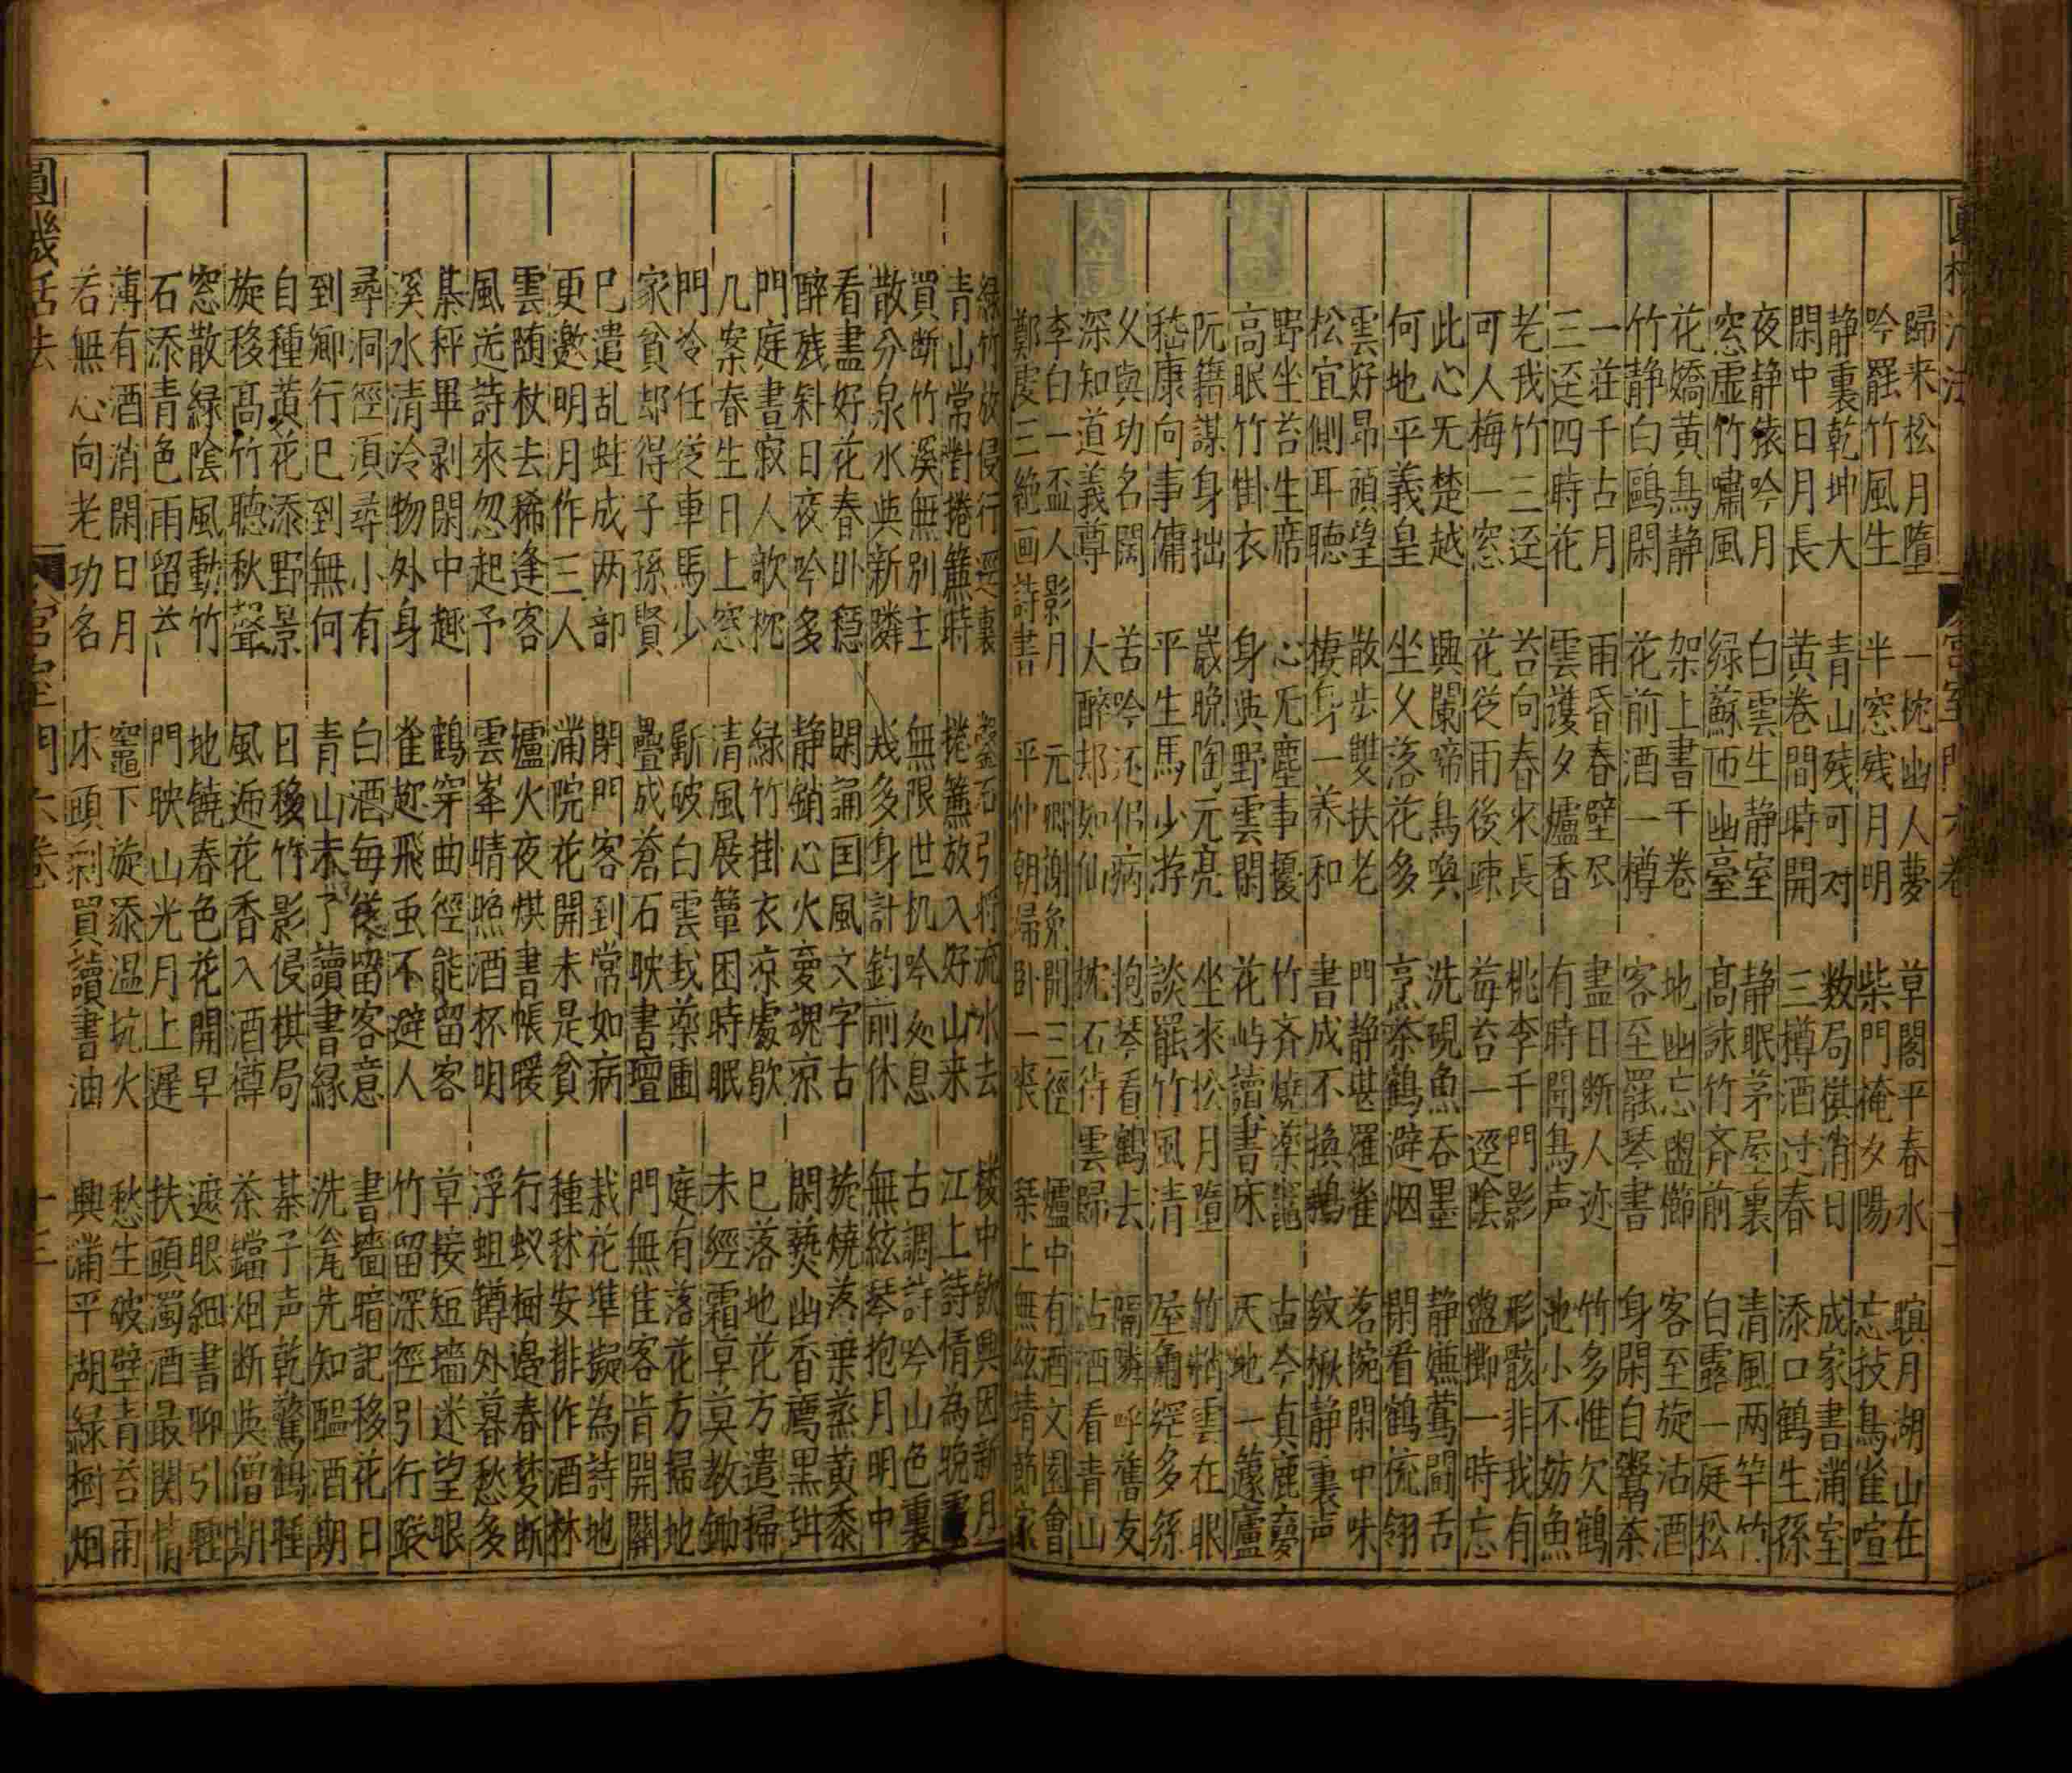 歸来松月墮 一枕幽人夢 草閣平春水 暝月湖山在
吟罷竹風生 半窓残月明 柴門掩夕陽 忘技鳥雀喧
静裏乾坤大 青山残可对 数局棋消日 成家書滿室
閑中日月長 黄巻間時開 三樽酒过春 添口鶴生孫
夜静猿吟月 白雲生静室 静眠茅屋裏 清風两竿竹
窓虚竹嘯風 緑蘇匝幽臺 髙詠竹斉前 白露一庭松
花嬌黄鳥静 架上書千卷 地幽忘盥櫛 客至旋沽酒
竹静白鷗閑 花前酒一樽 客至羅琴書 身閑自鬻茶
一荘千古月 雨昏春壁 盡日断人迹 竹多惟欠鶴
三逕四時花 雲護夕爐香 有時聞鳥声 池小不妨魚
老我竹三逕 苔向春來長 桃李千門影 形骸非我有
可人梅一窓 花從雨後疎 莓苔一逕陰 盥擲一時忘
此心无楚越 興闌啼鳥喚 洗硯魚吞墨 静嫌鶯鬬舌
何地平義皇 坐父落花多 烹茶鶴避烟 閑看鶴梳翎
雲好昂頭望 散步雙扶老 門静堪羅雀 茗椀閑中味
松宜側耳聴 棲身一养和 書成不換鵝 紋楸静裏声
野坐苔生席 心无塵事擾 竹斉燒藥竈 古今真鹿夢
高眠竹掛衣 身與野雲閑 花屿讀書床 天地一籧廬
阮籍謀身拙 歳晚陶元亮 坐來松月墮 竹雲在眼
嵇康向事傭 平生馬少游 談罷竹風清 屋角多孫
父與功名闊 苦吟还似病 抱琴看鶴去 隔隣呼舊友
深知道義尊 大醉却如仙 枕石待雲歸 沽酒看青山
李白一盃人影月 元卿謝免開三徑 爐中有酒文園會
鄭虔三絶画詩書 平仲朝歸卧一裘 琹上無絃靖節家
緑竹放侵行逕裏 鑿石引将流水去 楼中飲興因新月
青山常對捲簾時 捲簾放入好山来 江上詩情為晚雲
買断竹溪無别主 無限世机吟処息 古調詩吟山色裏
散分泉水與新隣 㡬多身計釣前休 無絃琴抱月明中
看盡好花春卧穏 閑誦国風文字古 旋燒落葉蒸黄黍
醉残斜日夜吟多 静銷心火夢魂凉 閑爇幽香薦黒甜
門庭晝寂人歌枕 緑竹掛衣凉處歇 已落地花方遣掃
几案春生日上窓 清風展簟困時眠 未經霜草莫教鋤
門冷任從車馬少 斸破白雲栽藥圃 庭有落花方掃地
家貧却得子孫賢 疊成蒼石映書壇 門無隹客肯開關
已遣乱蛙成两部 閉門客到常如病 栽花準擬為詩地
更邀明月作三人 滿院花開未是貧 種秫安排作酒林
雲随杖去稀逢客 爐火夜煨書帳暖 行蚁樹邉春梦断
風送詩來忽起予 雲峯晴照酒杯明 浮蛆罇外暮愁多
棊秤畢剥閑中趣 鶴穿曲徑能留客 草接短墻迷望眼
溪水清泠物外身 雀趂飛虫不避人 竹留深徑引行蹤
尋洞徑湏尋小有 白酒每從留客意 書墻暗記移花日
到郷行已到無何 青山未了讀書緣 洗瓮先知醞酒期
自種黄花添野景 日移竹影侵棋局 棊子声乾驚鶴睡
旋移髙竹聴秋聲 風遞花香入酒樽 茶鐺烟断與僧期
窓散緑陰風動竹 地饒春色花開早 遮眼細書聊引睡
石添青色雨留苔 門映山光月上遲 扶頭濁酒最関情
薄有酒消閑日月 竈下旋添温坑火 愁生破壁青苔雨
若無心向老功名 床頭剰買讀書油 興滿平湖緑樹烟
圓機活法 宮室門六卷 十三